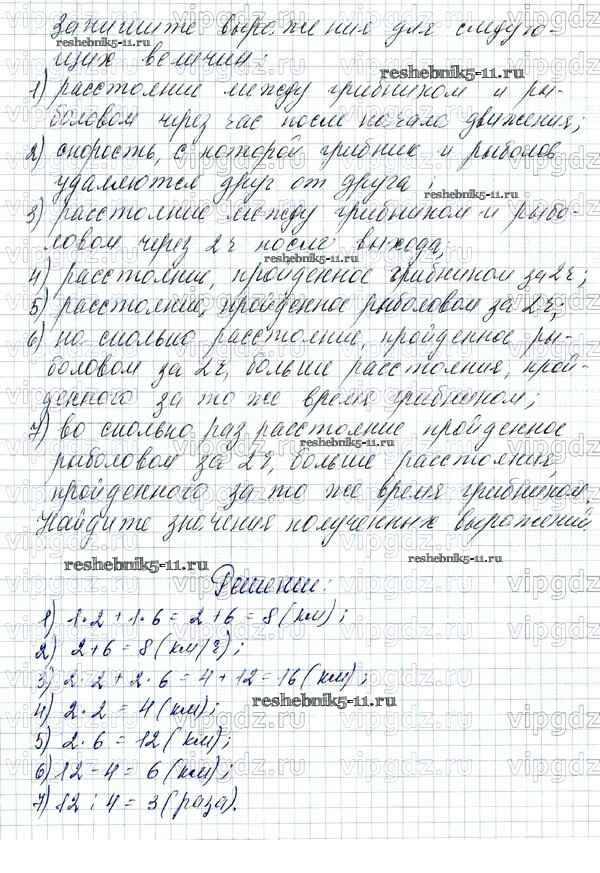 Запишите выражения для следую-
щих величин:
1) расстояние между грибником и ры-
боловом через час после начала движения;
2) скорость, с которой грибник и рыболов
удаляются друг от друга;
3) расстояние между грибником и рыбо-
ловом через 2ч после выхода;
4) расстояние, пройденное грибником за 2ч;
5) расстояние, пройденное рыболовом за 2ч;
6) на сколько расстояние, пройденное ры-
боловом за 2ч, больше расстояния, прой-
денного за то же время грибником;
7) во сколько раз расстояние пройденное
рыболовом за 2ч, больше расстояния,
пройденного за то же время грибником.
Найдите значения полученных выражений
Решение:
1) 1·2+1·6=2+6=8(км);
2) 2+6=8(км/ч);
3) 2·2+2·6=4+12=16(км);
4) 2·2=4(км);
5) 2·6=12(км);
6) 12-4=6(км);
7) 12:4=3(раза).
reshebnik5-11.ru
reshebnik5-11.ru
reshebnik5-11.ru
reshebnik5-11.ru
reshebnik5-11.ru
reshebnik5-11.ru
reshebnik5-11.ru
reshebnik5-11.ru
vipgdz.ru